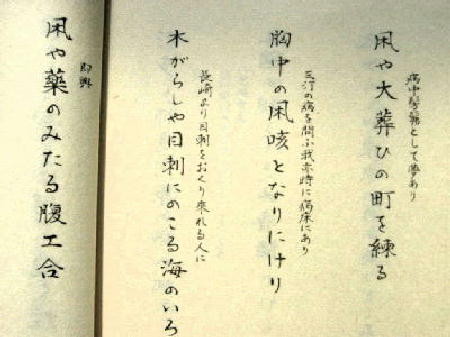 病中髣髴として夢あり
凩や大葬ひの町を練る
三汀の病を問ふ我亦時に病床にあり
胸中の凩咳となりにけり
長崎より目刺をおくり来れる人に
木がらしや目刺にのこる海のいろ
即興
凩や薬のみたる腹工合